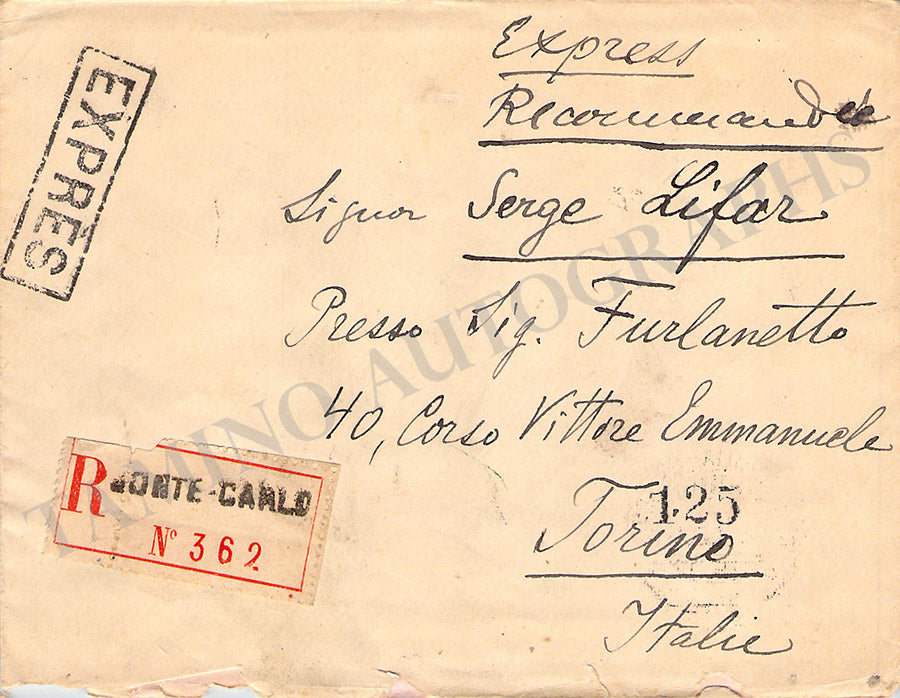 EXPRÈS
Express
Recommandée
Signor Serge Lifar
Presso Sig. Furlanetto
40, Corso Vittore Emmanuele
125
Torino
Italie
R MONTE-CARLO
Nº 362
TAMINO AUTOGRAPHS